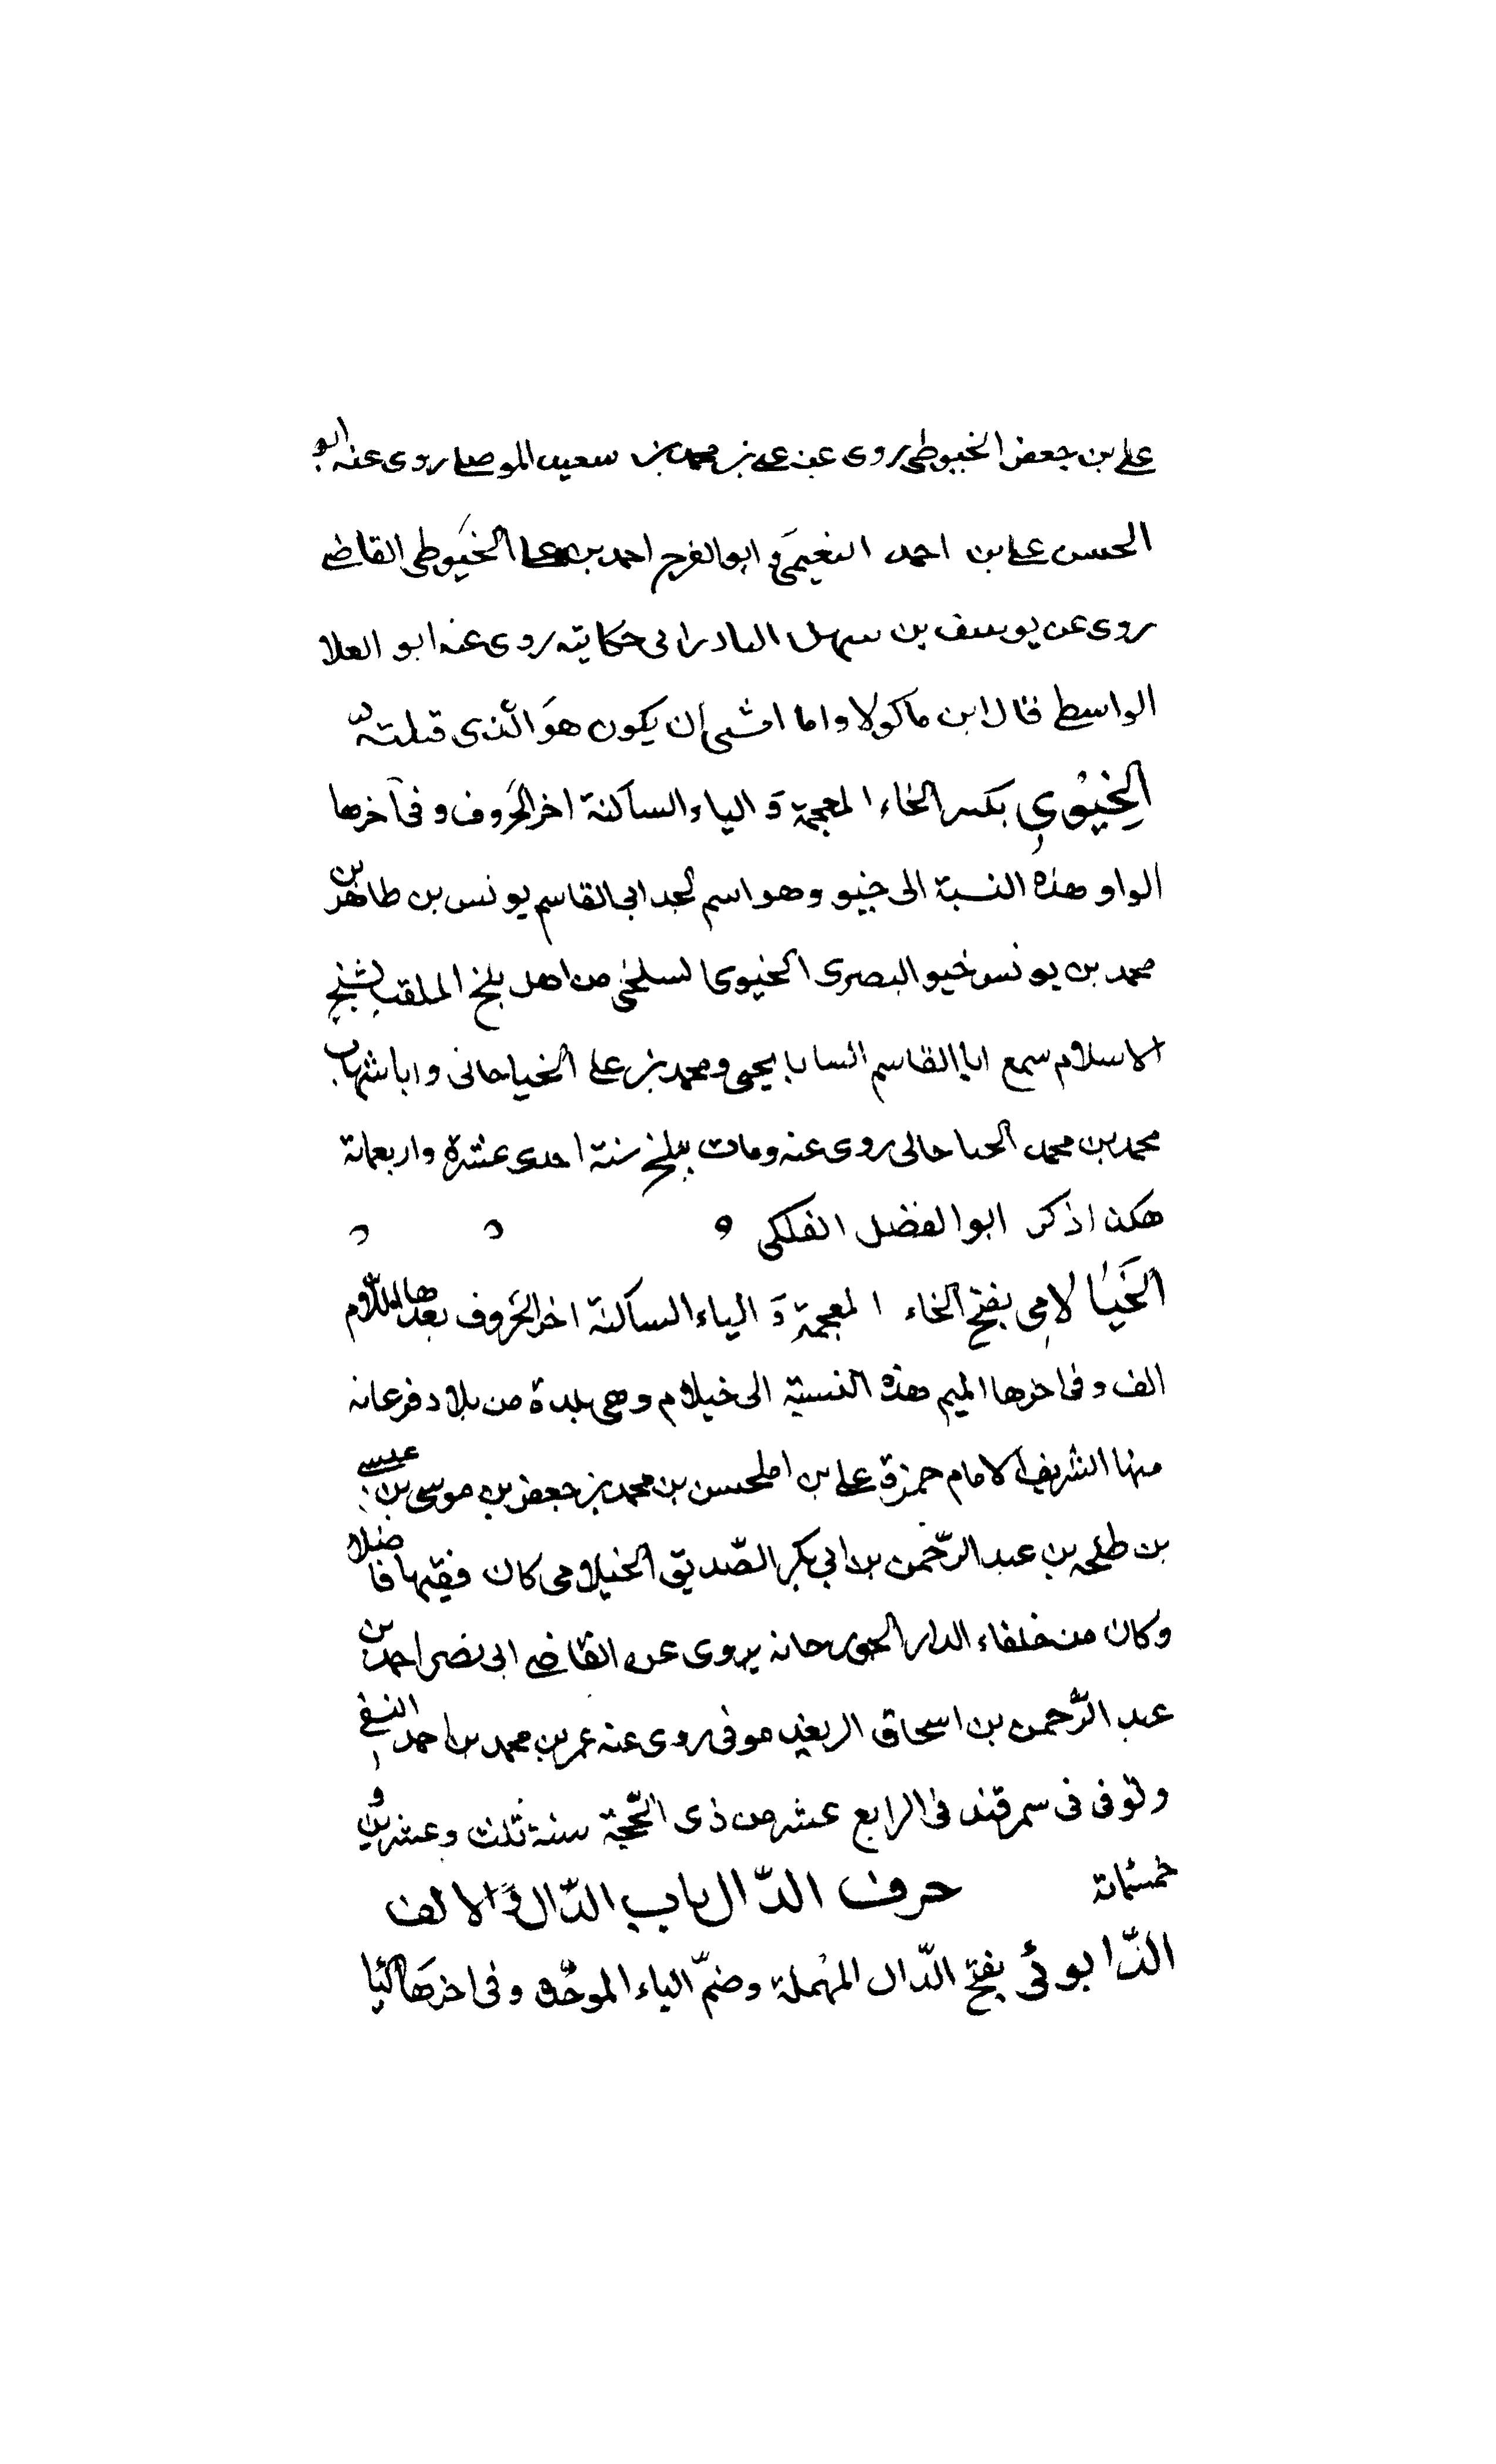 علي بن جعفر الخيوطي روى عن علي بن محمد بن سعيد الموصلي روى عنه ابو
الحسن علي بن احمد النعيمي و ابو الفرج احمد بن علي الخيوطي القاضي
روى عن يوسف بن سهل البادرائي حكاية روى عنه ابو العلا
الواسطي قال ابن ماكولا واما اخشى ان يكون هو الذي قبلته
الخِيوي بكسر الخاء المعجمة و الياء الساكنة اخر الحروف وفي آخرها
الواو هذه النسبة الى خيو وهو اسم لجد ابي القاسم يونس بن طاهر بن
محمد بن يونس خيو البصري الخيوي من اهل بلخ الملقب بشيخ
الاسلام سمع ابا القاسم ومحمد بن علي الخياحاني وابا شهاب
محمد بن محمد روى عنه ومات ببلخ سنة احدى عشرة واربعمائة
هكذا ذكر ابو الفضل الفلكي
الخَيلامي بفتح الخاء المعجمة و الياء الساكنة اخر الحروف بعدها اللام
الف وفي اخرها الميم هذه النسبة الى خيلام وهي بلدة من بلاد فرغانه
منها الشريف الامام حمزة بن علي بن المحسن بن محمد بن جعفر بن موسى بن عيسى
بن طلحه بن عبد الرّحمن بن ابي بكر الصّديق الخيلامي كان فقيها فاضلا
وكان من خلفاء الدار الجورجانه يروى عن القاضي ابي نصر احمد بن
عبد الرّحمن بن اسحاق الريغدموني روى عنه عمر بن محمد بن احمد النسفي
وتوفى في سمرقند في الرابع عشر من ذى الحجّة سنة ثلث وعشرين و
خمسمائة حرف الدّال باب الدّال و الالف
الدّابوئي بفتح الدّال المهملة وضمّ الباء الموحّدة وفي اخرها اليا